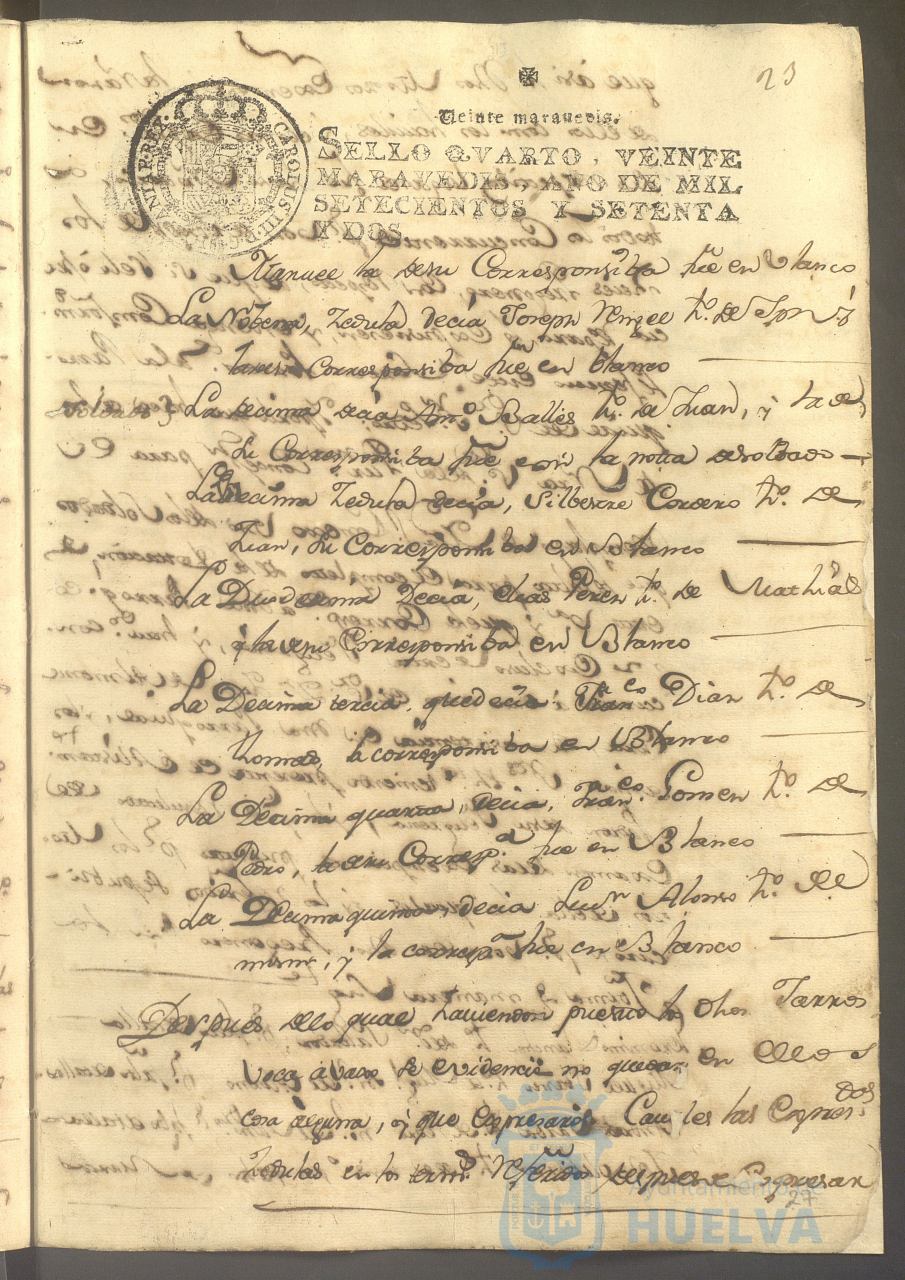 23
Veinte maravedis.
SELLO QVARTO, VEINTE
MARAVEDIS, AÑO DE MIL
SETECIENTOS Y SETENTA
Y DOS.
CAROLUS III
Manuel la desu Corresponsiba fue en Blanco
La Nobena Zedula decia Joseph hº. de
Corresponsiba fue en Blanco
La decima decia Antº Balles hº. de Juan, y la de
su Corresponsiba fue con la notta de soldado
La decima Zedula decia, Silbestre Cordero hº. de
Juan, su Corresponsiba en Blanco
La Duodecima decia, Elias Peren hº. de Mathias
y la de su Corresponsiba en Blanco
La Decima tercia, que decia, Franco Dian hº. de
thomas, la corresponsiba en Blanco
La Decima quarta, decia, Franco. Gomen hº. de
Pedro, la de su Corresp.a fue en Blanco
La Decima quinta, decia Alonso hº. de
, y la corresp.a fue en Blanco
Despues de lo qual haviendon puesto los Dhos Jarros
Voca avaxo Se evidencio no quedar en ellos
cosa alguna, y que Cau les las Expresdos
Zedulas en los termos Referidos
27
Ayuntamiento de
HUELVA